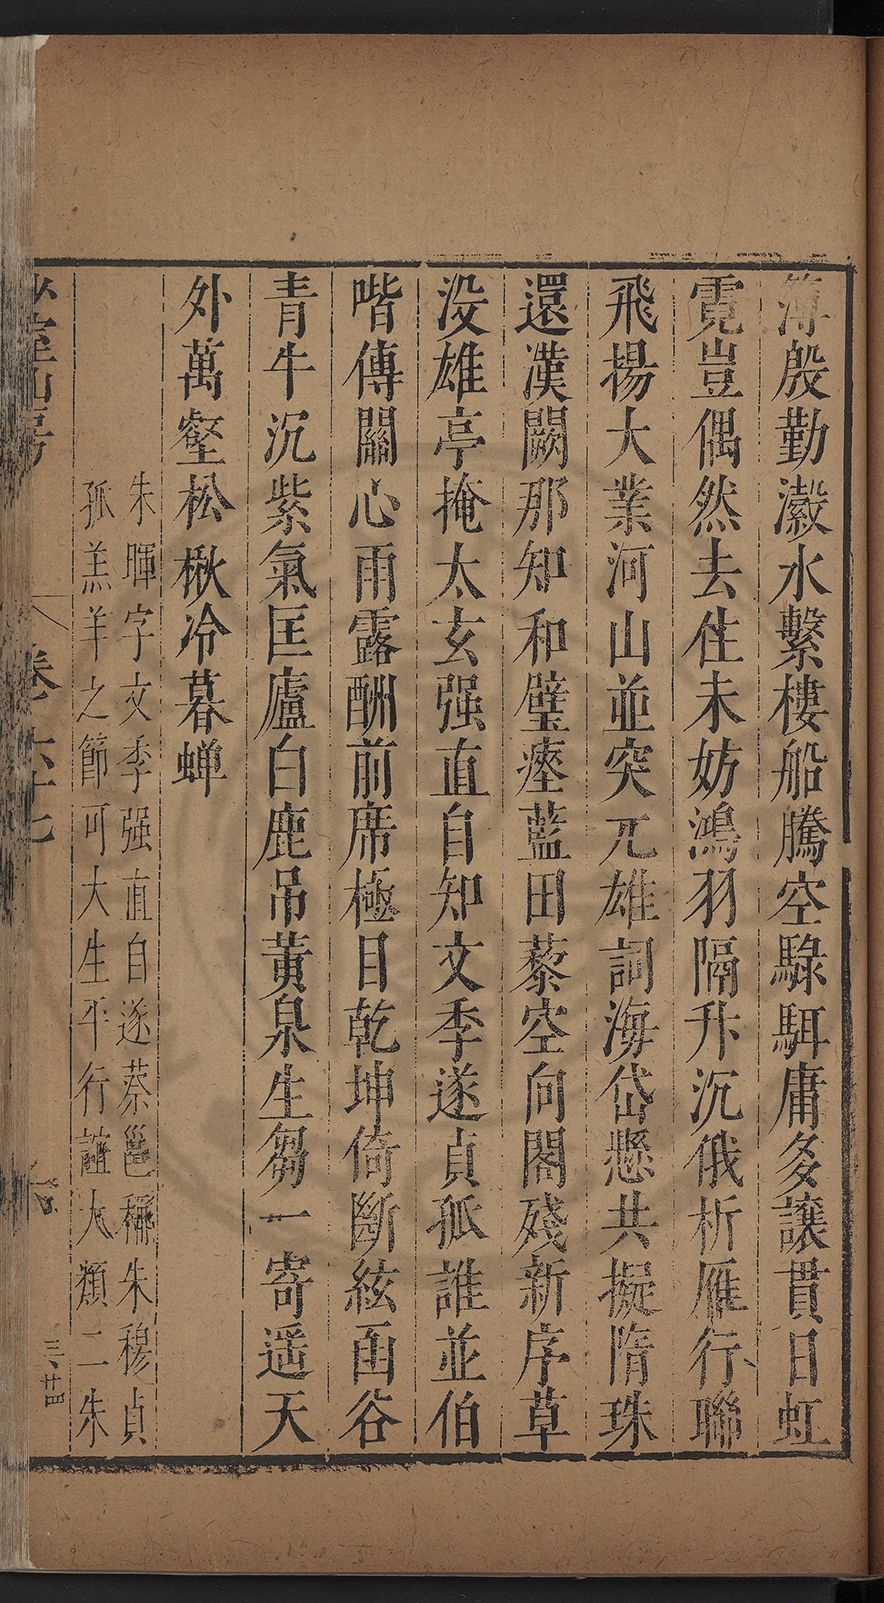 薄殷勤瀫水繫樓船騰空騄駬庸多讓貫日虹
霓豈偶然去住未妨鴻羽隔升沉俄析雁行聯
飛揚大業河山並突兀雄詞海岱懸共擬隋珠
還漢闕那知和璧瘞藍田藜空向閣殘新序草
没雄亭掩太玄强直自知文季遂貞孤誰並伯
喈傳關心雨露酬前席極目乾坤倚斷絃函谷
青牛沉紫氣匡廬白鹿吊黃泉生芻一寄遥天
外萬壑松楸冷暮蟬
朱暉字文季强直自遂蔡邕稱朱穆貞
孤羔羊之節可大生平行誼大類二朱
室山房
卷六十七
六
三、廿四